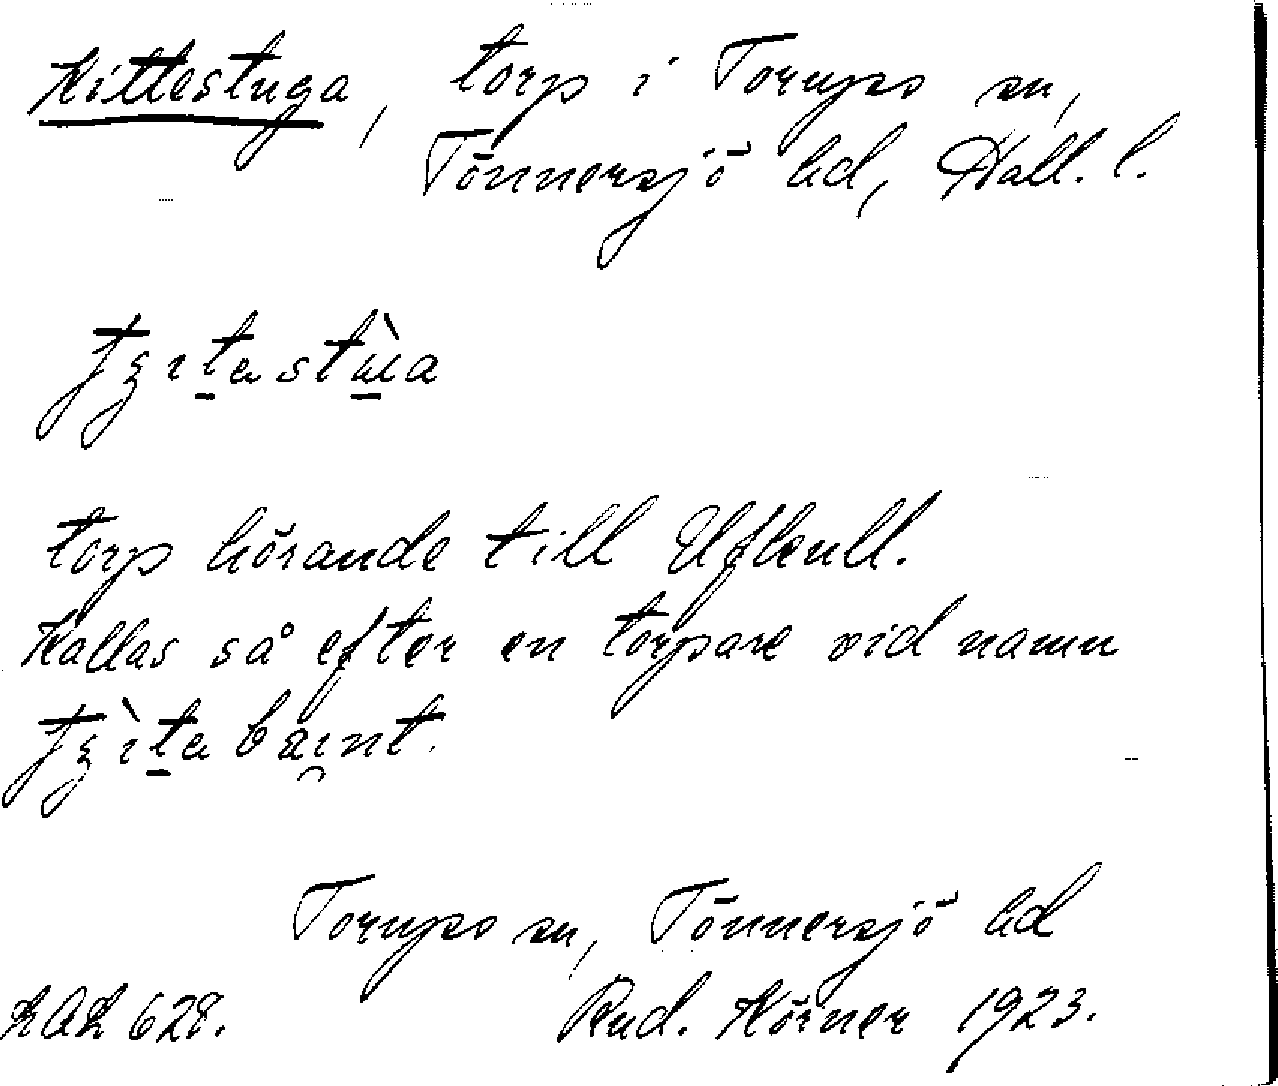 Kittestuga, torp i Torups sn,
Tönnersjö hd, Hall. l.
torp hörande till Ufkull.
Kallas så efter en torpare vid namn
Torups sn, Tönnersjö hd
LAL 628. Rud. Körner 1923.